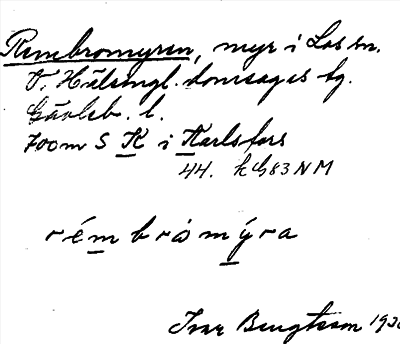 Rembromyren, myr i Los sn.
V. Hälsingl. domsagas tg.
Gävleb. l.
700 m S K i Karlsfors
44. h G83 NM
rémbrȧmýra
Ivar Bengtsson 193